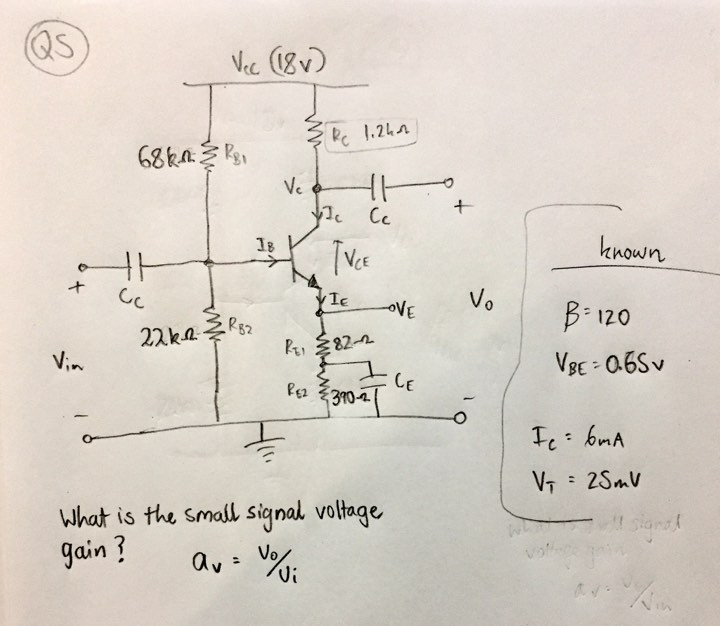 Q5
Vcc (18v)
68kΩ
RB1
Rc 1.2kΩ
Vc
Cc
+
Ic
IB
VCE
+
Cc
IE
VE
Vo
22kΩ
RB2
RE1
82Ω
Vin
RE2
390Ω
CE
-
-
known
β = 120
VBE = 0.65v
Ic = 6mA
VT = 25mV
What is the small signal voltage
gain? av = Vo/Vi
small signal
voltage gain
av = Vo/Vin